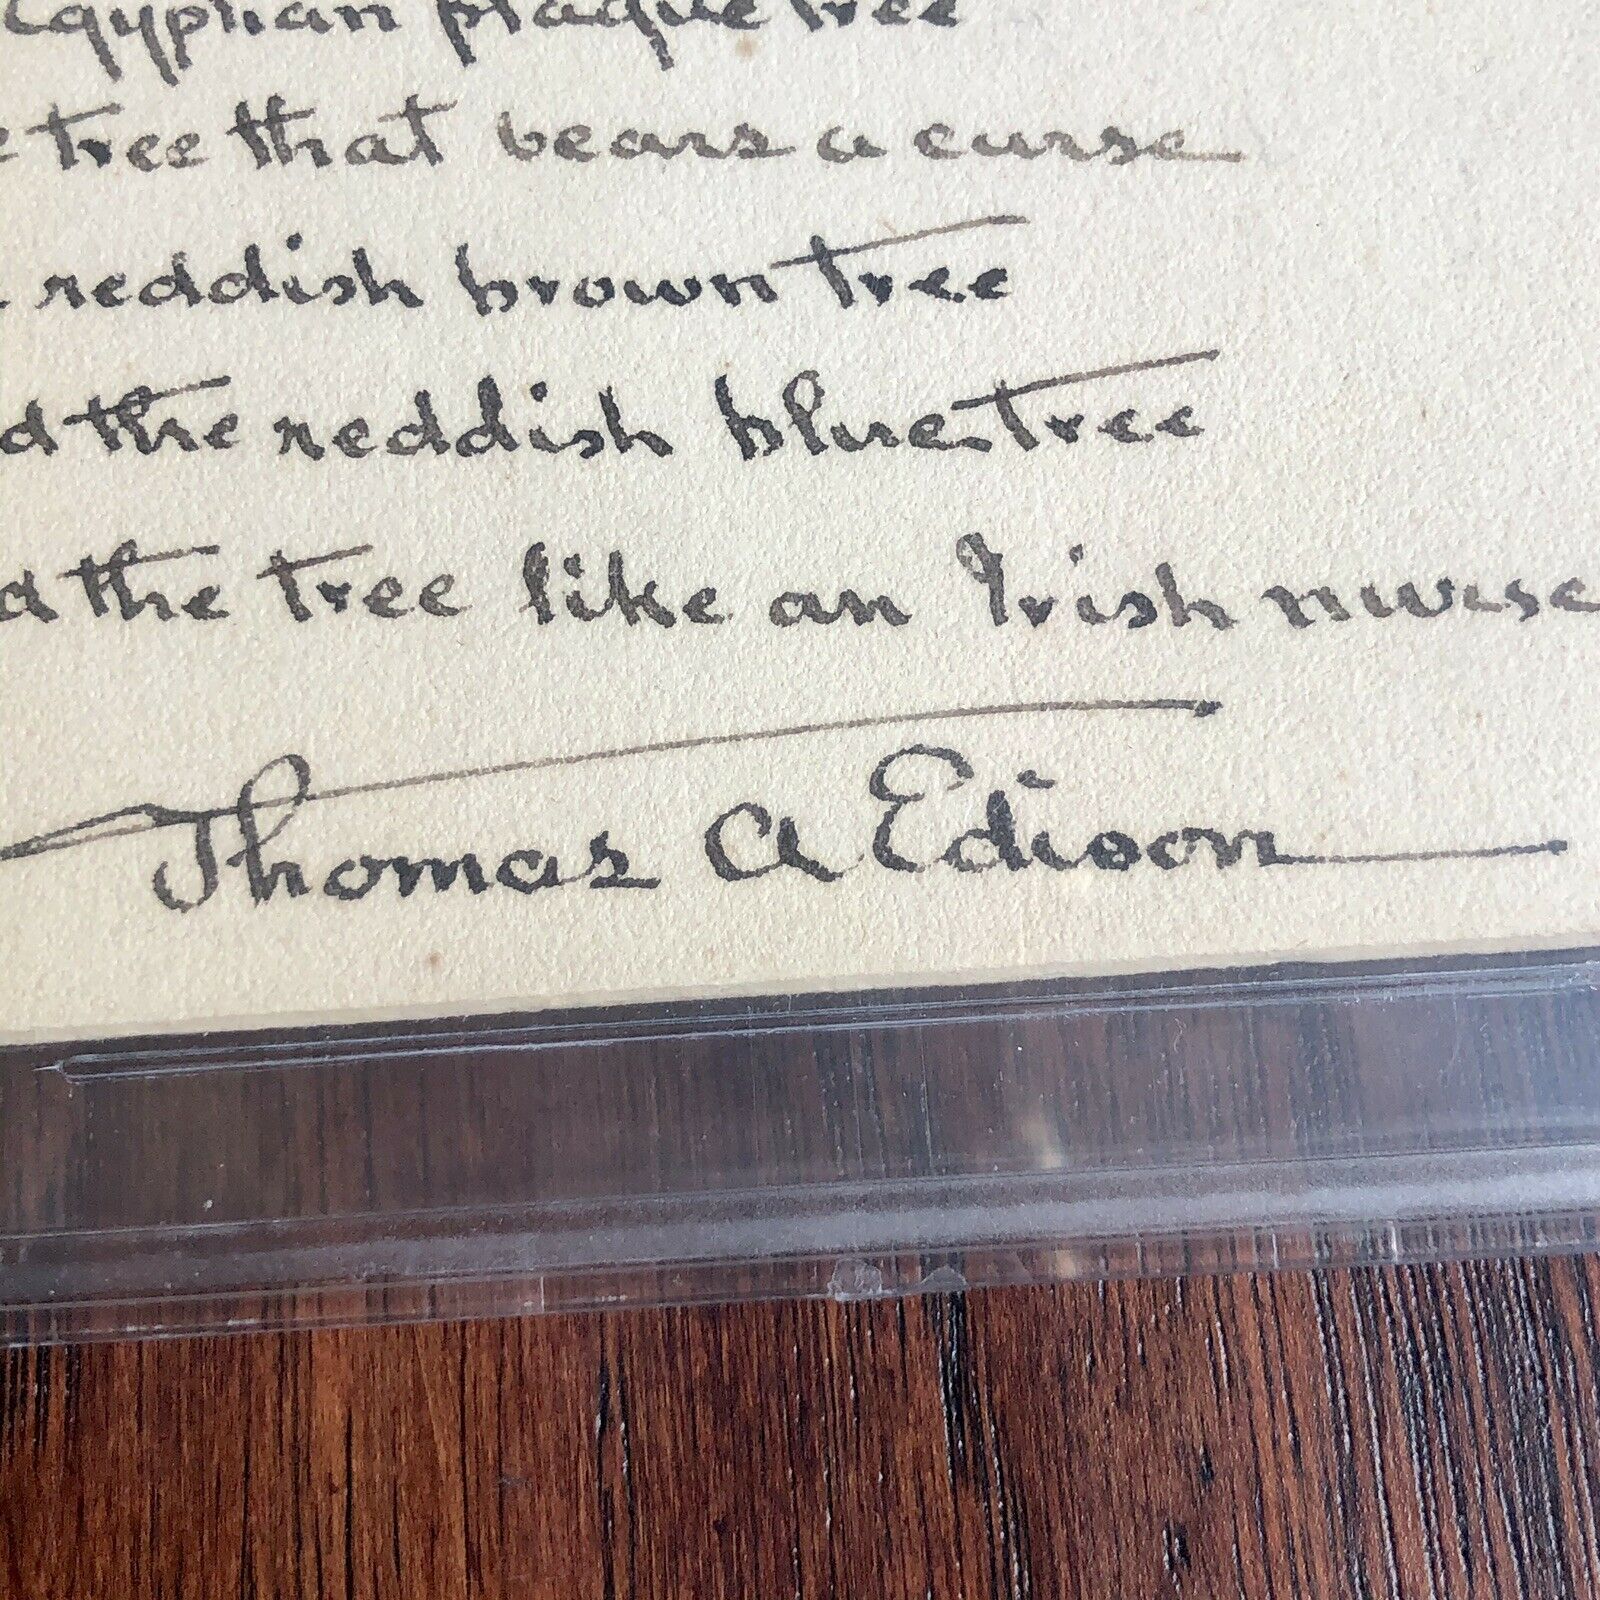 Egyptian plague tree
tree that bears a curse
reddish brown tree
d the reddish blue tree
d the tree like an Irish nurse
Thomas A Edison